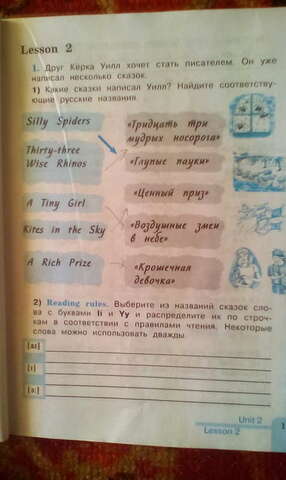 Lesson 2
1. Друг Кёрка Уилл хочет стать писателем. Он уже
написал несколько сказок.
1) Какие сказки написал Уилл? Найдите соответству-
ющие русские названия.
Silly Spiders
Thirty-three
Wise Rhinos
A Tiny Girl
Kites in the Sky
A Rich Prize
«Тридцать три
мудрых носорога»
«Глупые пауки»
«Ценный приз»
«Воздушные змеи
в небе»
«Крошечная
девочка»
2) Reading rules. Выберите из названий сказок сло-
ва с буквами Ii и Yy и распределите их по строч-
кам в соответствии с правилами чтения. Некоторые
слова можно использовать дважды.
[aɪ]
[ɪ]
[ɜ:]
Unit 2
Lesson 2
1